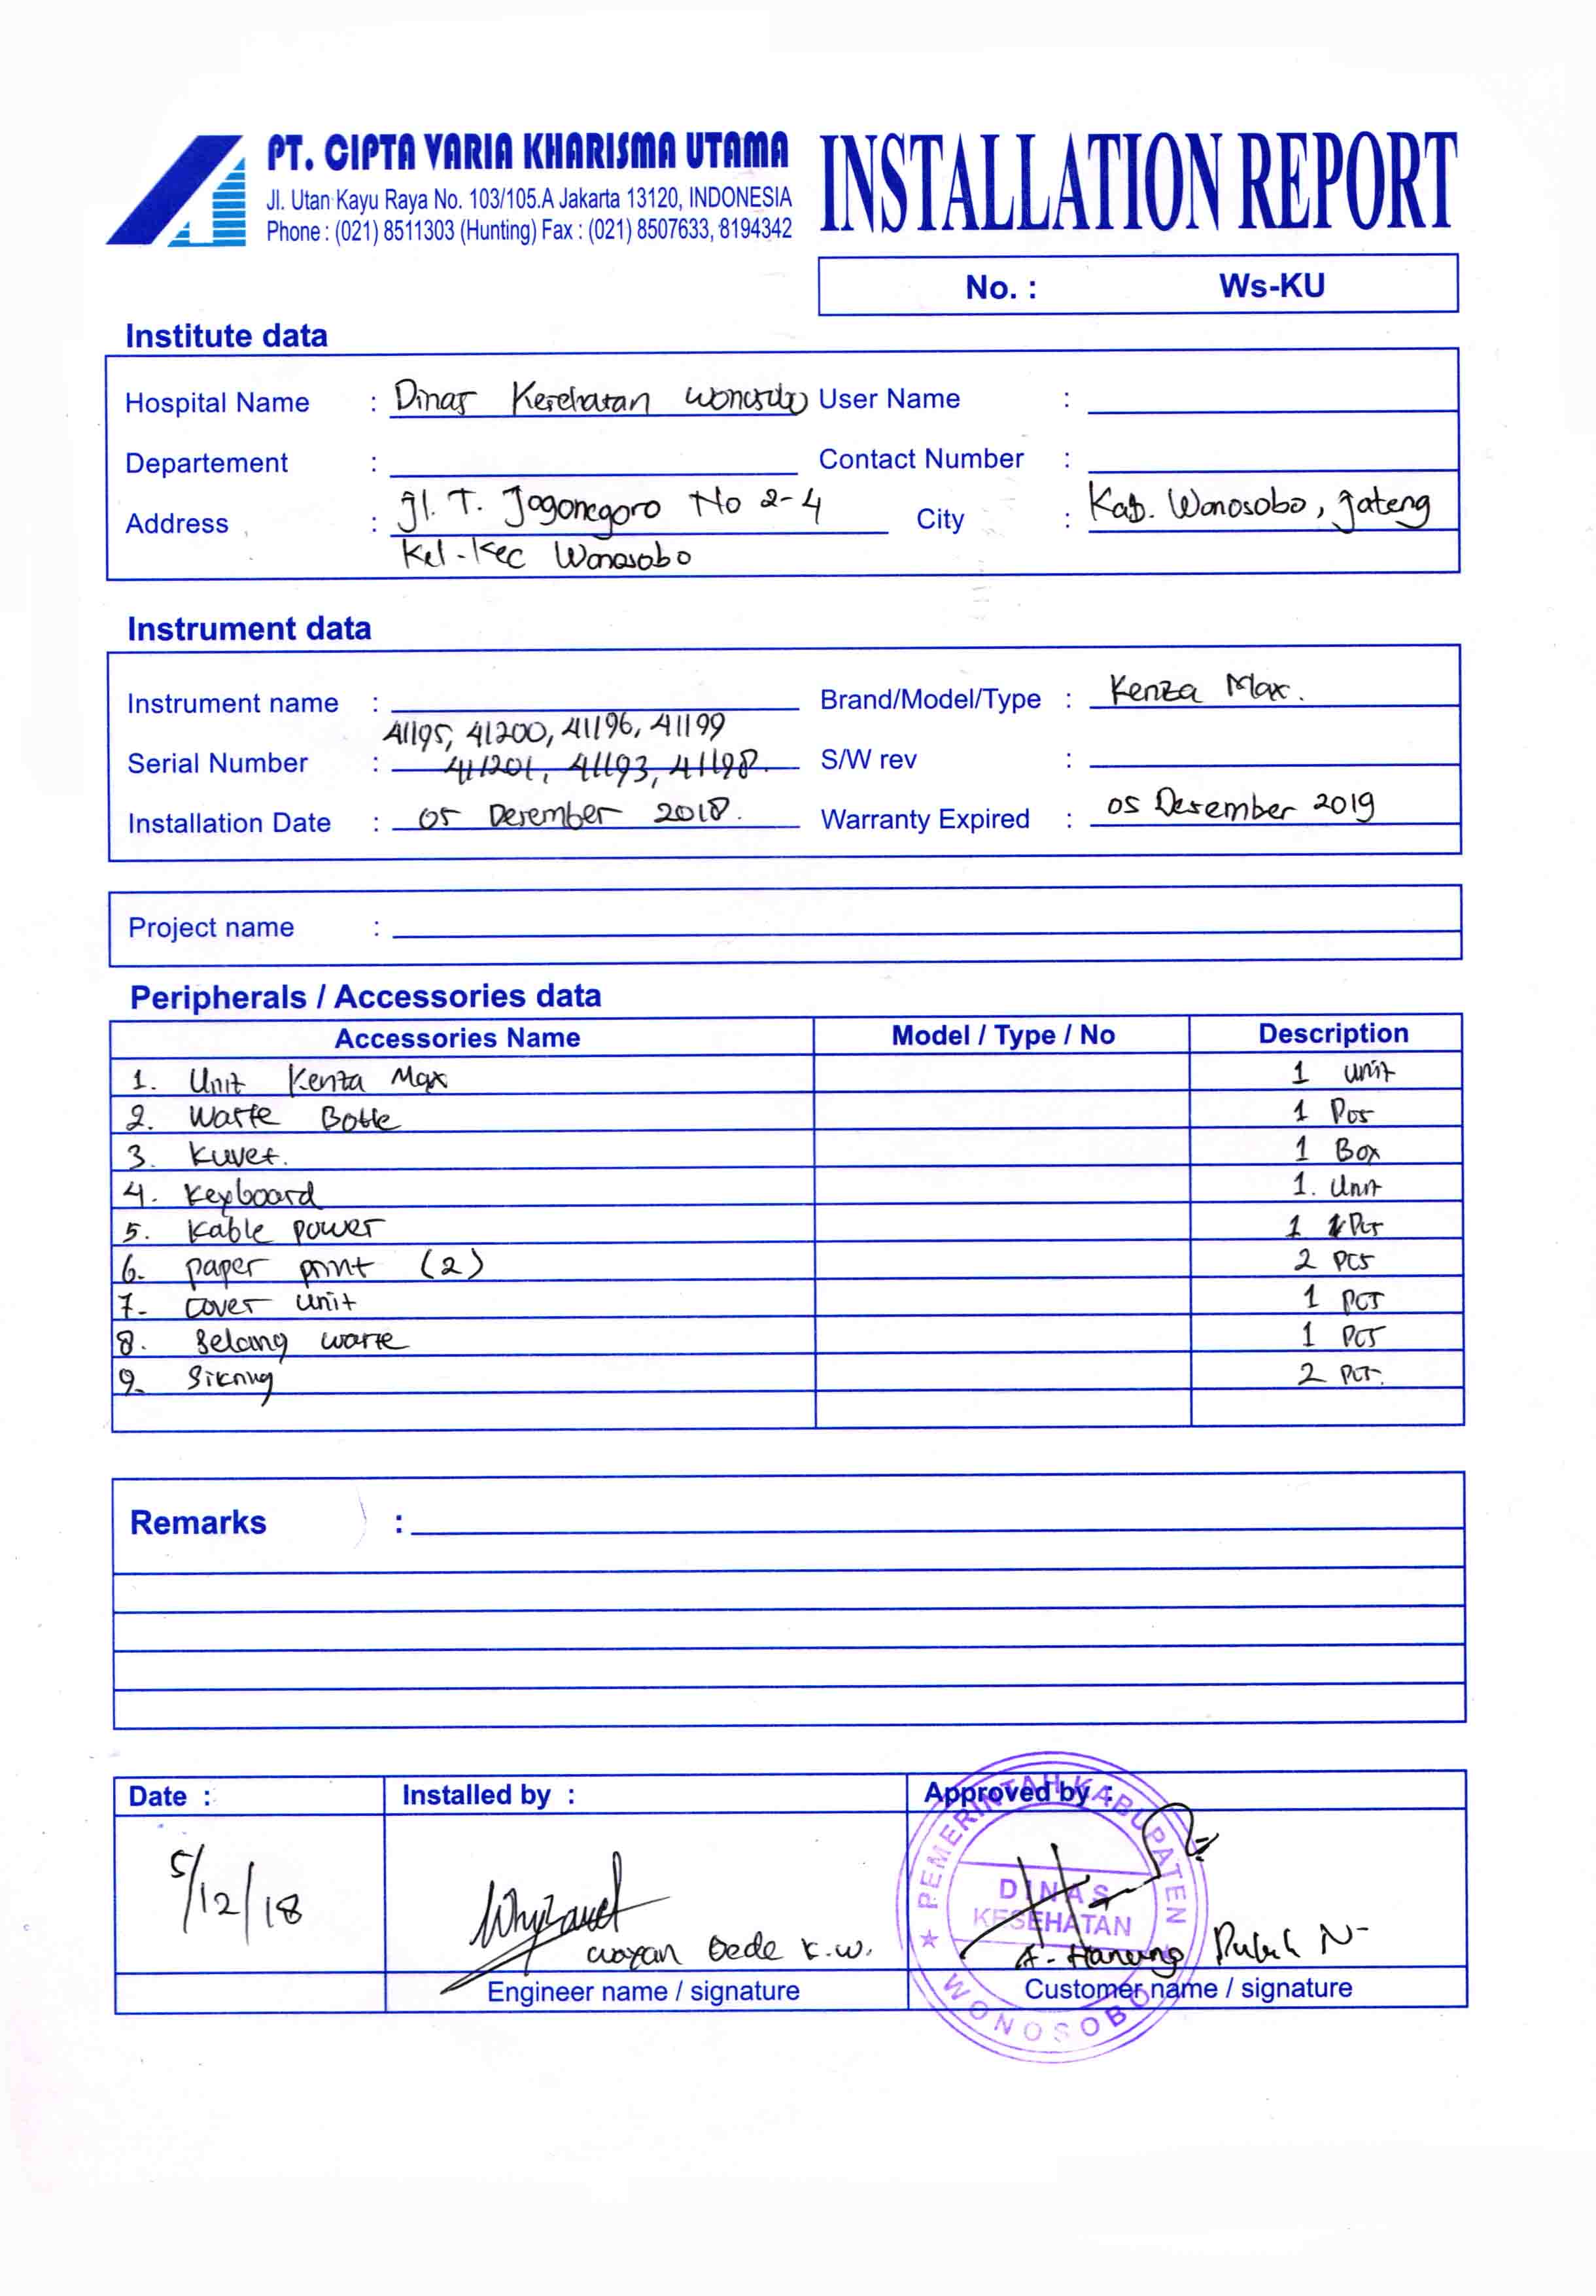 PT. CIPTA VARIA KHARISMA UTAMA
Jl. Utan Kayu Raya No. 103/105.A Jakarta 13120, INDONESIA
Phone : (021) 8511303 (Hunting) Fax : (021) 8507633, 8194342
INSTALLATION REPORT
No. : Ws-KU
Institute data
Hospital Name : Dinas Kesehatan Wonosobo User Name :
Departement : Contact Number :
Address : Jl. T. Jogonegoro No 2-4 City : Kab. Wonosobo, Jateng
Kel-Kec Wonosobo
Instrument data
Instrument name : Brand/Model/Type : Kenza Max.
41195, 41200, 41196, 41199
Serial Number : 411201, 41193, 41198. S/W rev :
Installation Date : 05 Desember 2018. Warranty Expired : 05 Desember 2019
Project name :
Peripherals / Accessories data
Accessories Name Model / Type / No Description
1. Unit Kenza Max 1 unit
2. Waste Bottle 1 Pcs
3. Kuvet. 1 Box
4. Keyboard 1. Unit
5. Kable power 1 Pcs
6. paper print (2) 2 pcs
7. cover unit 1 pcs
8. Selang waste 1 pcs
9. Sikring 2 pcs.
Remarks :
Date : Installed by : Approved by :
5/12/18
Wayan Gede K.W.
A. Hanung N
Engineer name / signature Customer name / signature
PEMERINTAH KABUPATEN
DINAS
KESEHATAN
WONOSOBO